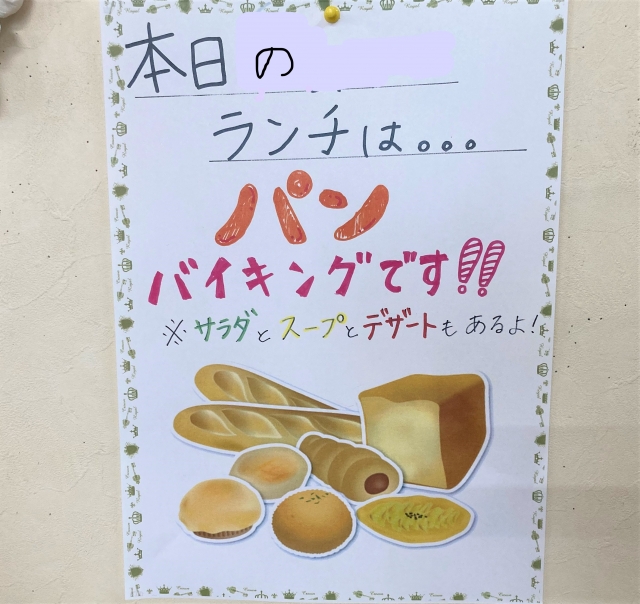 本日の
ランチは。。。
パン
バイキングです!!
※サラダとスープとデザートもあるよ!